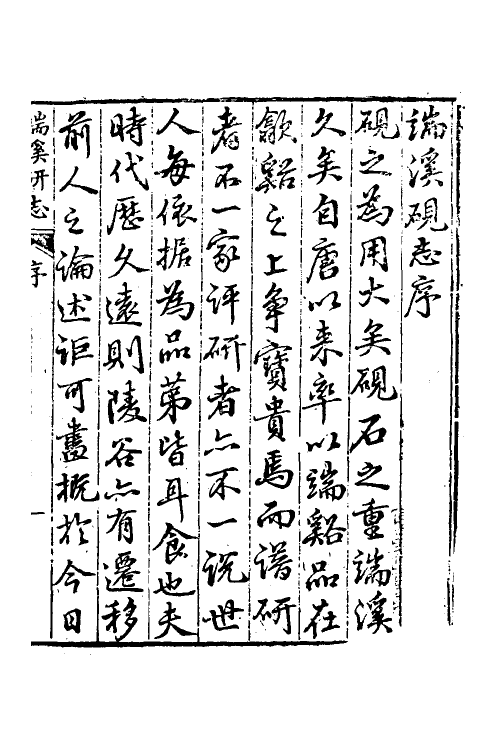 端溪硯志序
硯之為用大矣硯石之重端溪
久矣自唐以来率以端谿品在
歙谿之上争寶貴焉而譜研
者不一家评研者亦不一說世
人每依据為品第皆耳食也夫
時代歷久遠則陵谷亦有遷移
前人之論述詎可盡概於今日
端溪研志 序 一